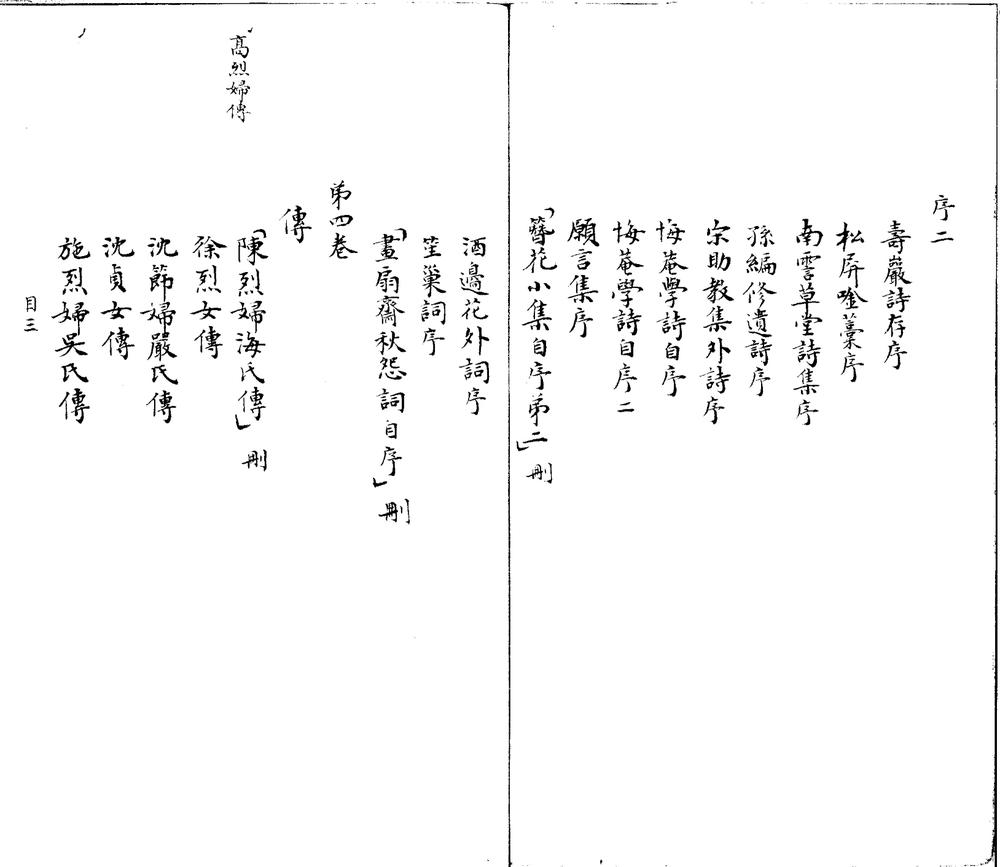 序二
壽巖詩存序
松屏唫藁序
南雲草堂詩集序
孫編修遺詩序
宗助教集外詩序
悔菴學詩自序
悔菴學詩自序二
願言集序
「簪花小集自序弟二」刪
酒邊花外詞序
笙巢詞序
「畫扇齋秋怨詞自序」刪
弟四卷
傳
高烈婦傳
「陳烈婦海氏傳」刪
徐烈女傳
沈節婦嚴氏傳
沈貞女傳
施烈婦吳氏傳
目三